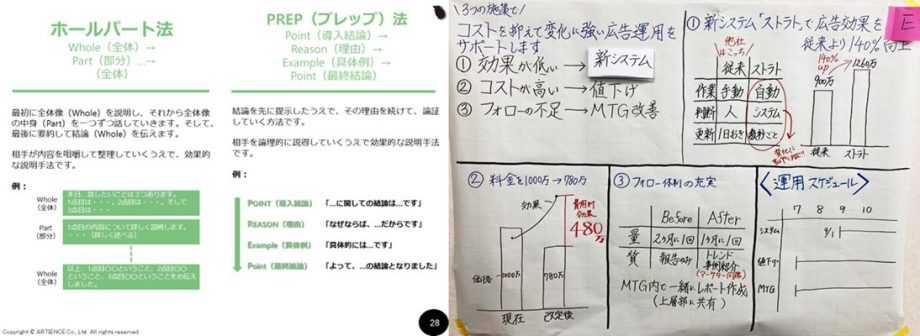 ホールパート法
Whole（全体）→
Part（部分）…→
（全体）
最初に全体像（Whole）を説明し、それから全体像
の中身（Part）を一つずつ話していきます。そして、
最後に要約して結論（Whole）を伝えます。
相手が内容を咀嚼して整理していくうえで、効果的
な説明手法です。
例：
Whole
（全体）
本日、話したいことは2つあります。
1点目は・・・、2点目は・・・。そして
Part
（部分）
1点目の内容について詳しく説明します。
・・・（詳しく述べる）
Whole
（全体）
しました。
PREP（プレップ）法
Point（導入結論）→
Reason（理由）→
Example（具体例）→
Point（最終結論）
結論を先に提示したうえで、その理由を続けて、論証
していく方法です。
相手を論理的に説得していくうえで効果的な説明手法
です。
例：
POINT（導入結論） 「…に関しての結論は…です」
REASON（理由） 「なぜならば、…だからです」
Example（具体例） 「具体的には…です」
Point（最終結論） 「よって、…の結論となりました」
Copyright © ARTIENCE Co., Ltd. All rights reserved.
28
3つの施策で！
コストを抑えて変化に強い広告運用を
サポートします
① 効果が低い → 新システム
② コストが高い → 値下げ
③ フォローの不足 → MTG改善
E
① 新システム「ストラト」で広告効果を
従来より140%向上
他社はこっち
従来 ストラト
作業 手動 自動
判断 人 システム
更新 1日おき 数秒ごと
140%
up
900万
1260万
従来 ストラト
② 料金を1000万→780万
効果
費用対効果
480万
価格
1000万
780万
現在 改定後
③ フォロー体制の充実
Before After
量 2ヶ月に1回 1ヶ月に1回
質 報告のみ トレンド
事例紹介
MTG内で一緒にレポート作成
（上層部に共有）
運用スケジュール
7 8 9 10
システム 9/1
値下げ
MTG